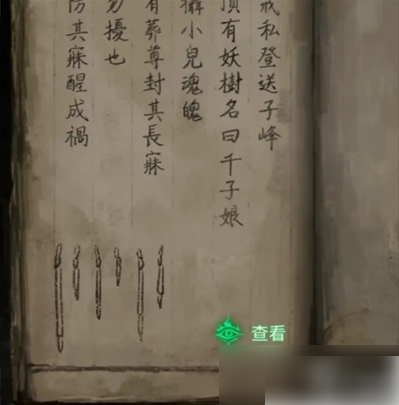 戒私登送子峰
頂有妖樹名曰千子娘
攝小兒魂魄
有葬尊封其長寐
勿擾也
防其寐醒成禍
查看